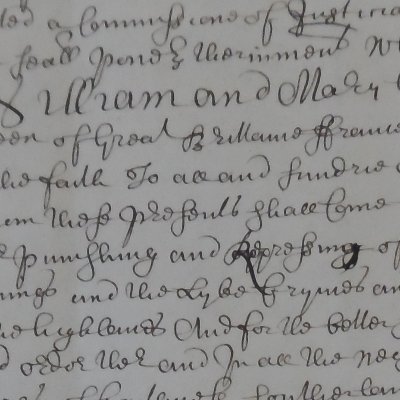 a Commissione of Justiciar
seall pend therinment
William and Mary
een of Great Brittaine ffrance
the faith To all and sundrie
whom these presents shall come
punishing and Repressing of
and the lyke Crymes an
he highlands And for the better
order ther and In all the